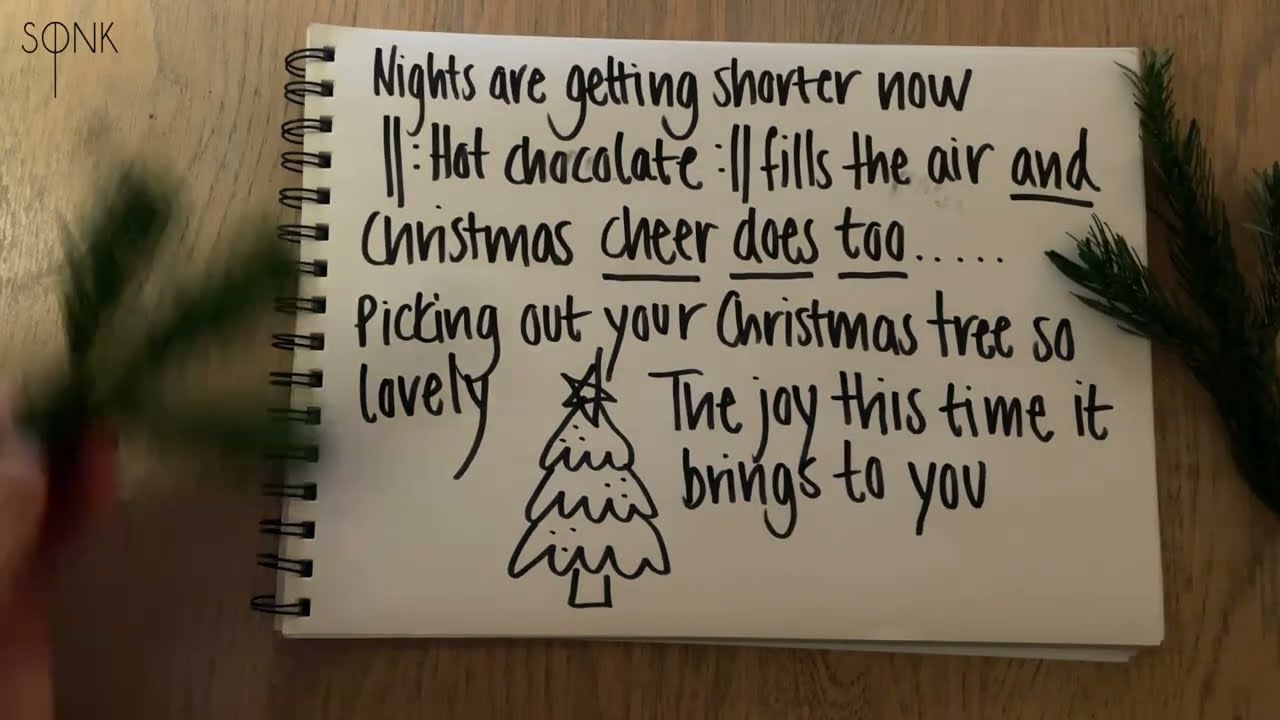 SONK
Nights are getting shorter now
||: Hot chocolate :|| fills the air and
Christmas cheer does too.....
Picking out your Christmas tree so
lovely
The joy this time it
brings to you